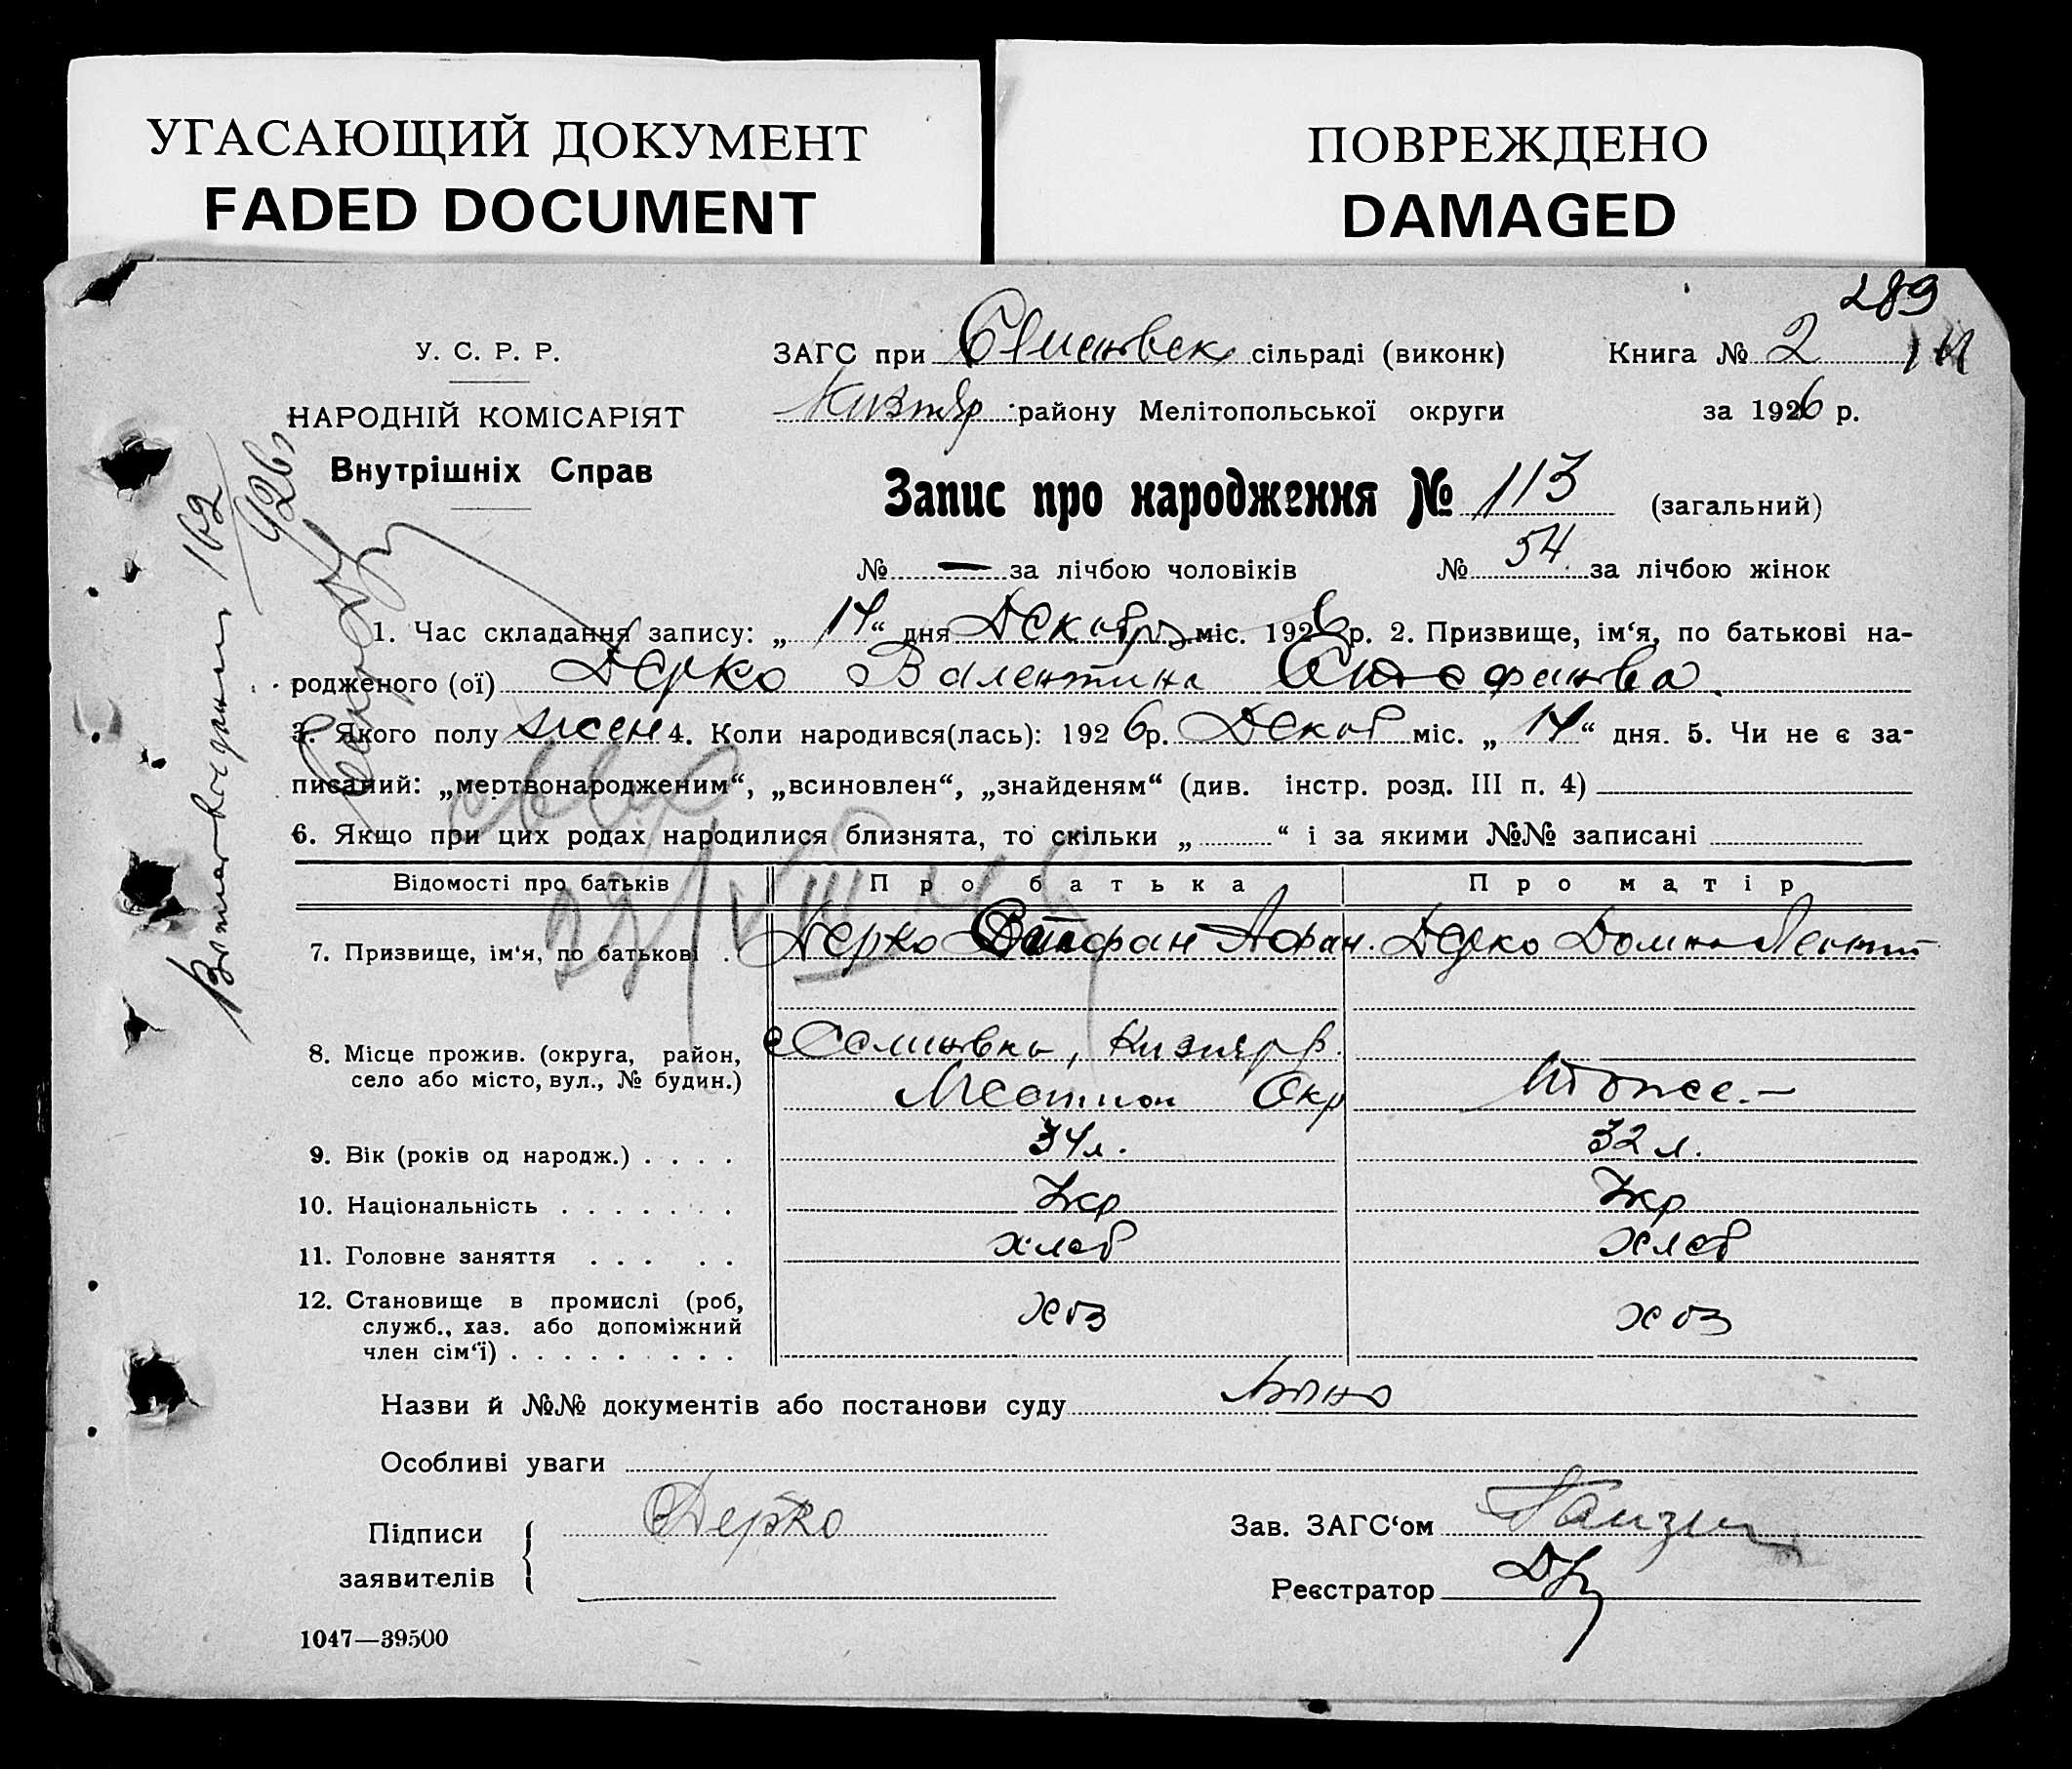 УГАСАЮЩИЙ ДОКУМЕНТ
FADED DOCUMENT
ПОВРЕЖДЕНО
DAMAGED
289
У. С. Р. Р.
НАРОДНІЙ КОМІСАРІЯТ
Внутрішніх Справ
ЗАГС при сільраді (виконк)
Книга № 2
району Мелітопольської округи
за 1926 р.
Запис про народження № 113 (загальний)
№ — за лічбою чоловіків № 54 за лічбою жінок
1. Час складання запису: „ 14 “ дня Декабр міс. 1926 р. 2. Призвище, ім‘я, по батькові на-
родженого (ої) Дерко Валентина
3. Якого полу жен 4. Коли народився(лась): 1926 р. Декаб міс. „ 14 “ дня. 5. Чи не є за-
писаний: „мертвонародженим“, „всиновлен“, „знайденям“ (див. інстр. розд. III п. 4)
6. Якщо при цих родах народилися близнята, то скільки „ “ і за якими №№ записані
Відомості про батьків Про батька Про матір
7. Призвище, ім‘я, по батькові . Дерко Афан. Дерко Домна
8. Місце прожив. (округа, район,
село або місто, вул., № будин.) Окр тоже. —
9. Вік (років од народж.) . . . . 34 л. 32 л.
10. Національність . . . . . . . Укр Укр
11. Головне заняття . . . . . хлеб хлеб
12. Становище в промислі (роб,
служб., хаз. або допоміжний
член сім‘ї) . . . . . . . . . хоз хоз
Назви й №№ документів або постанови суду
Особливі уваги
Підписи
заявителів Дерко
Зав. ЗАГС‘ом
Реєстратор
1047—39500
162
926